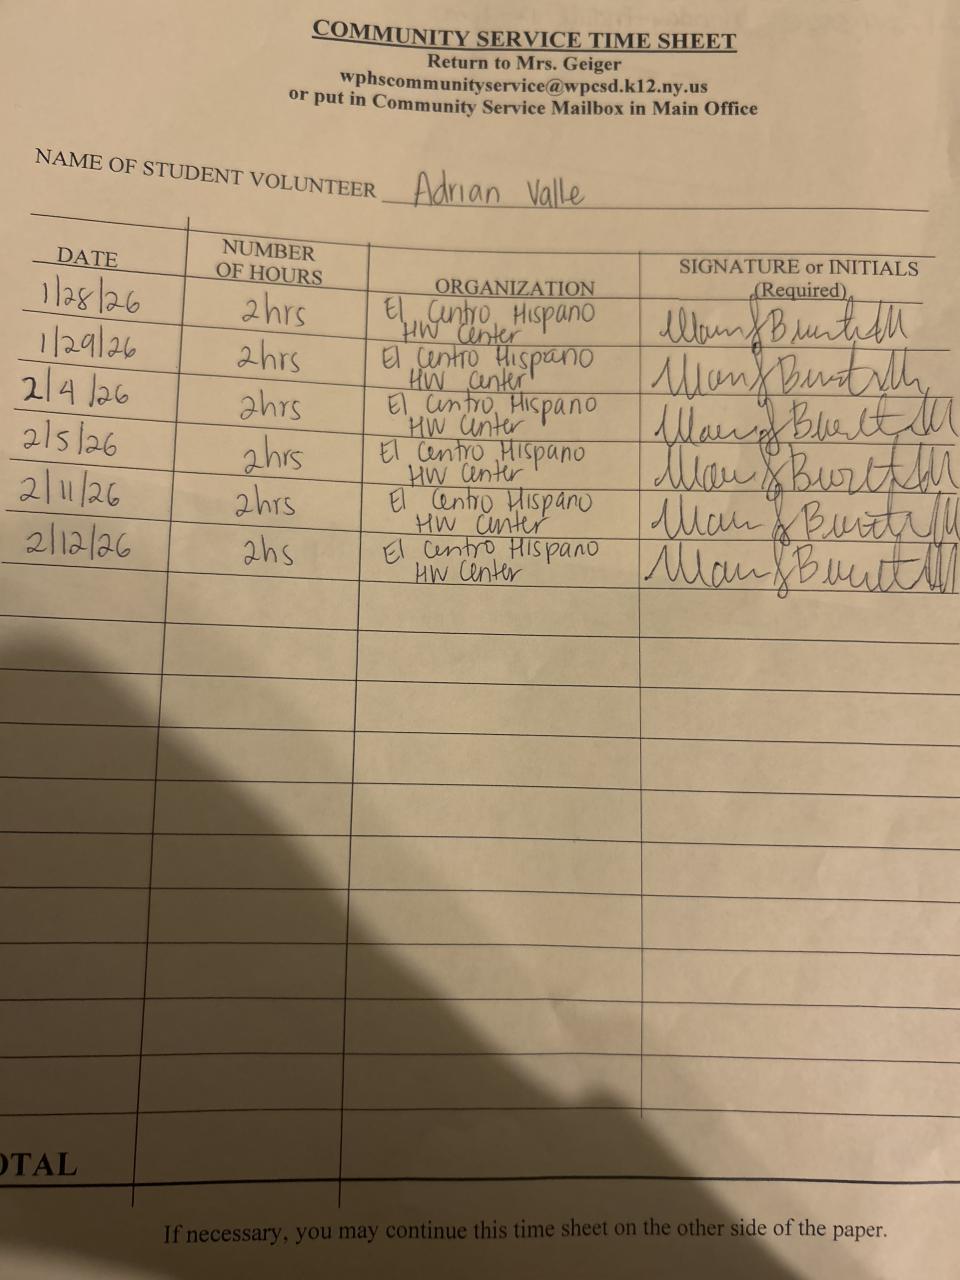 COMMUNITY SERVICE TIME SHEET
Return to Mrs. Geiger
wphscommunityservice@wpcsd.k12.ny.us
or put in Community Service Mailbox in Main Office
NAME OF STUDENT VOLUNTEER Adrian Valle
DATE NUMBER OF HOURS ORGANIZATION SIGNATURE or INITIALS (Required)
1/28/26 2hrs El Centro Hispano
HW Center
1/29/26 2hrs El Centro Hispano
HW Center
2/4/26 2hrs El Centro Hispano
HW Center
2/5/26 2hrs El Centro Hispano
HW Center
2/11/26 2hrs El Centro Hispano
HW Center
2/12/26 2hs El Centro Hispano
HW Center
OTAL
If necessary, you may continue this time sheet on the other side of the paper.